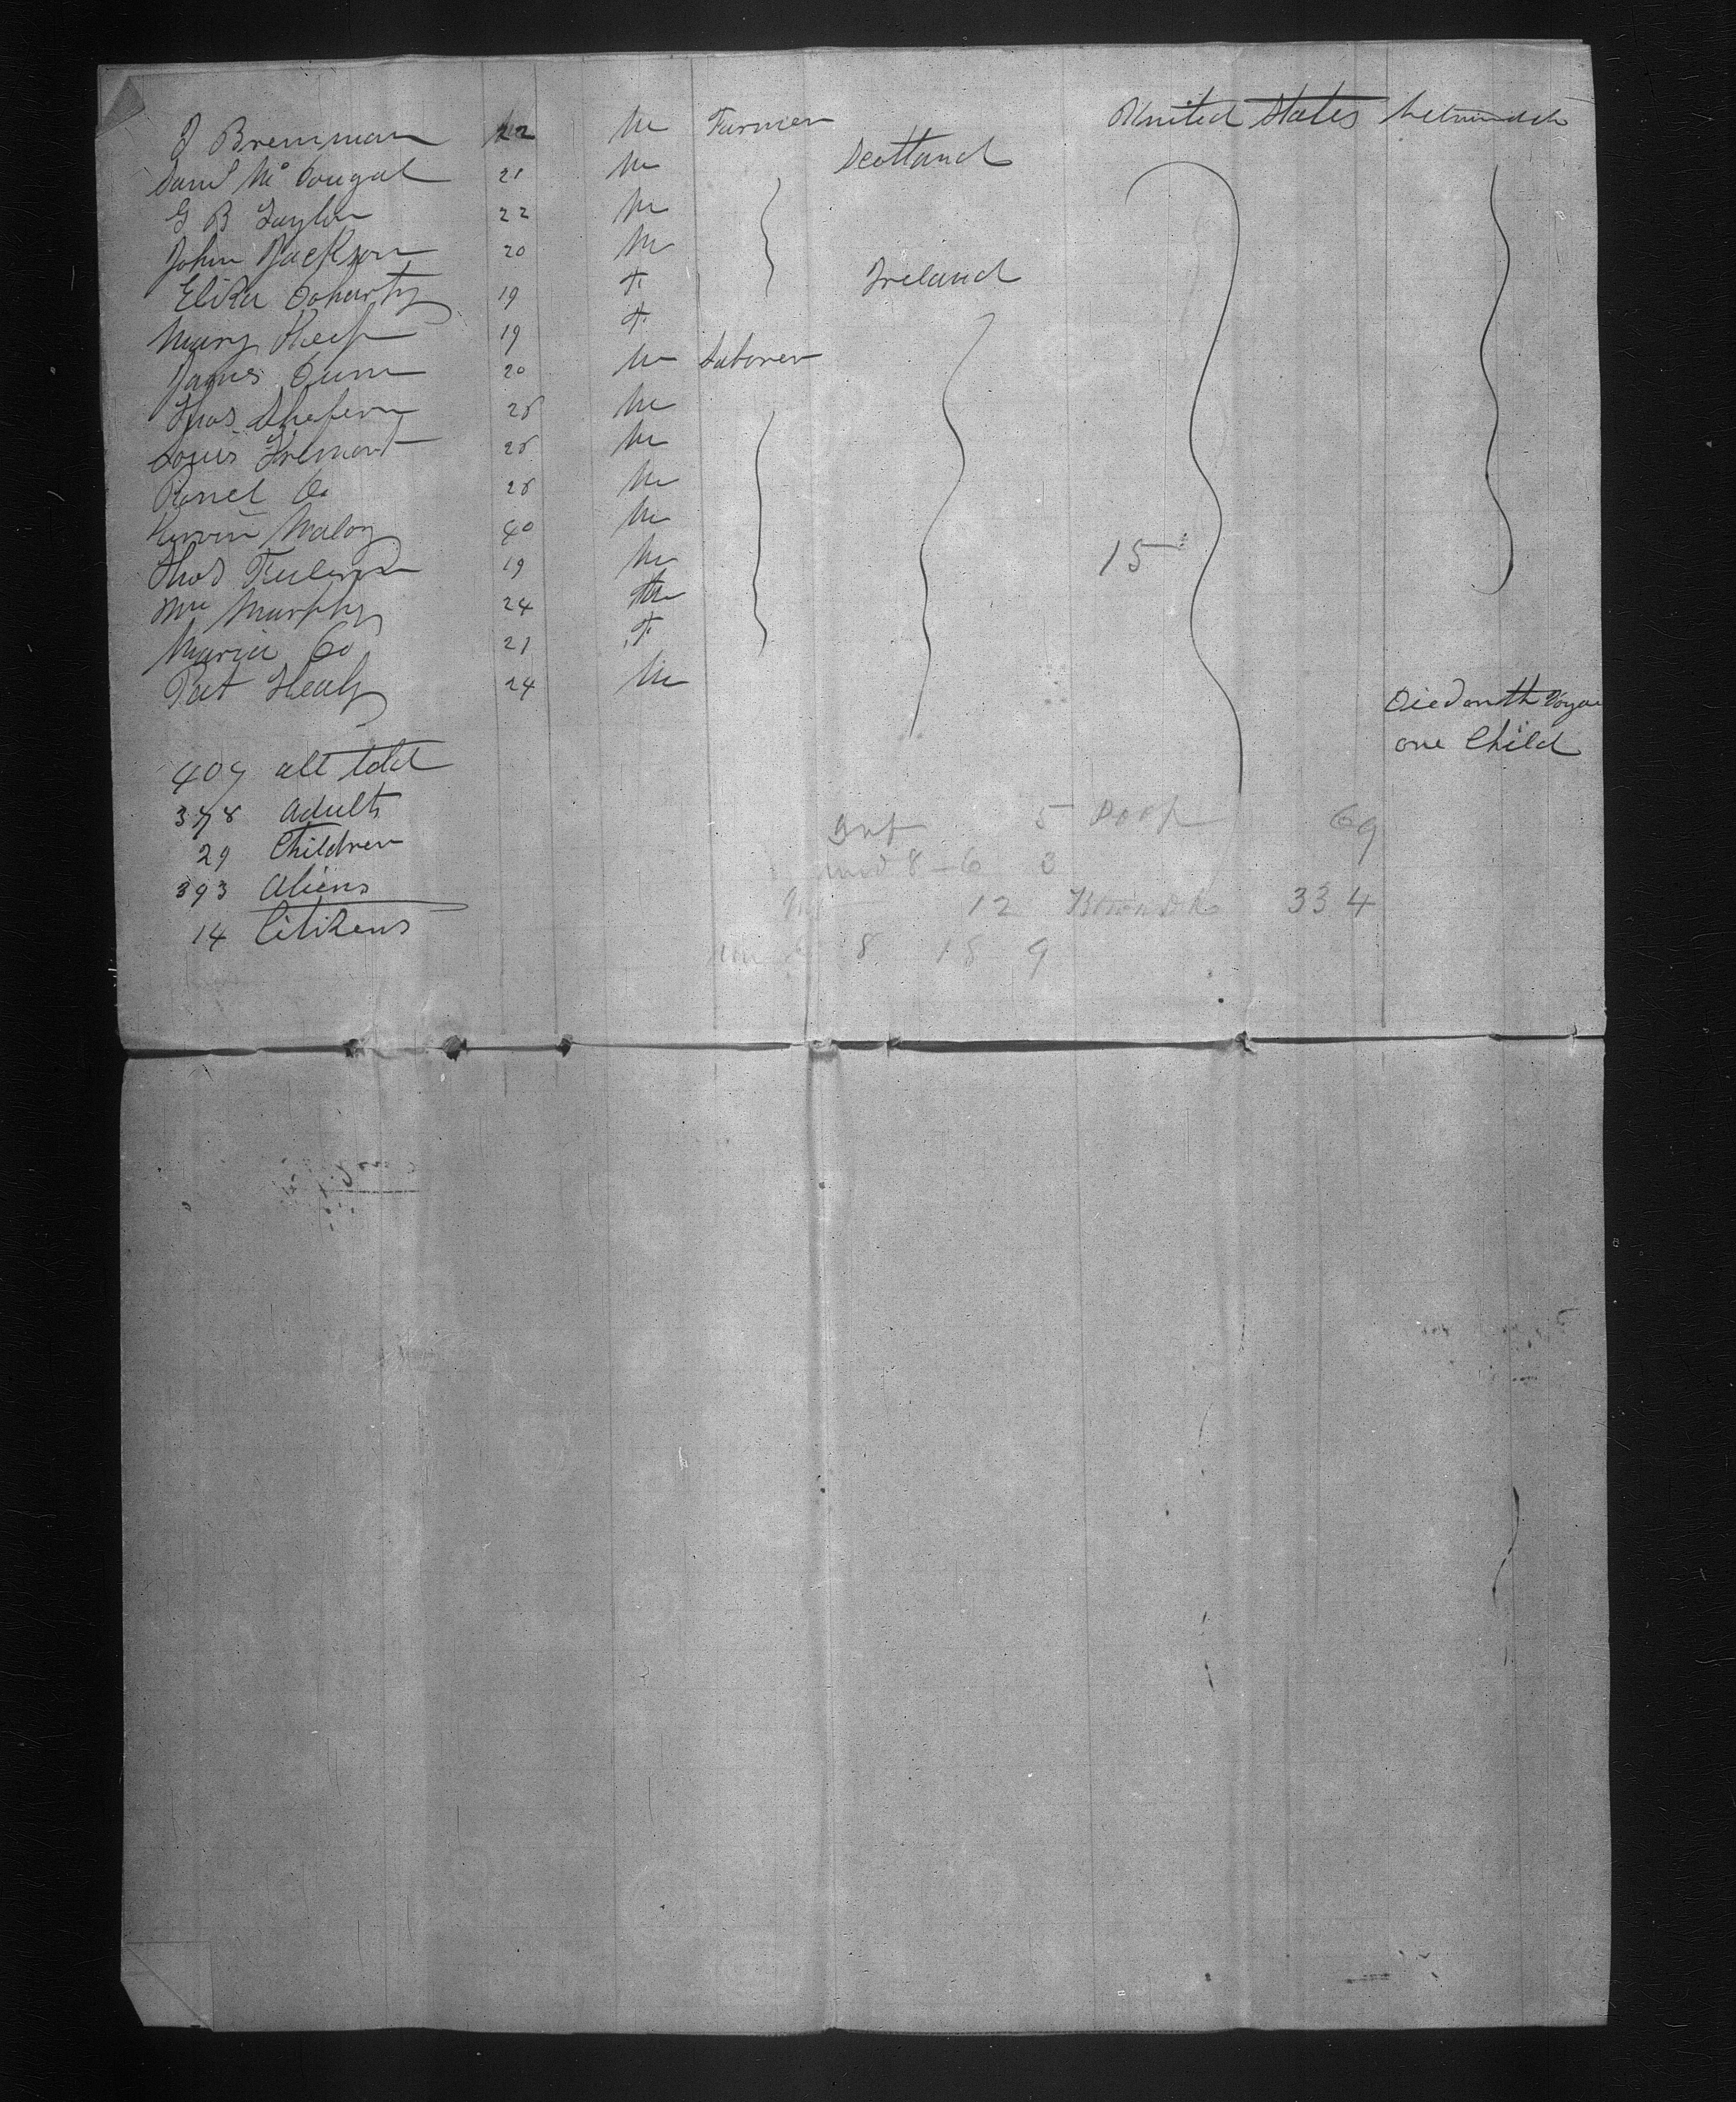 J Brennman 22 M Farmer United States between decks
Danl McDougal 21 M Scotland
G B Taylor 22 M
John Jackson 20 M
Eliza Doharty 19 F Ireland
Mary Keep 19 F
James Dunn 20 M Laborer
Thos 28 M
Louis Fremont 28 M
28 M
Maloy 40 M
Thos 19 M 15
Wm Murphy 24 M
Maria Do 21 F
Pat Healy 24 M
Died on th Voyae
one Child
407 all told
378 Adults
29 Children
393 Aliens
14 Citizens
5 Poop 69
8-6 3
12 334
8 18 9